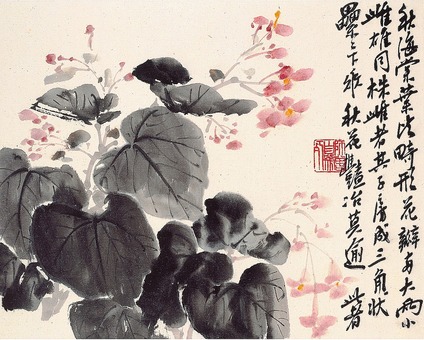 秋海棠葉畸形花瓣大兩小
雌雄同株雌者其子房成三角狀
纍纍下垂秋花豔冶莫逾此者